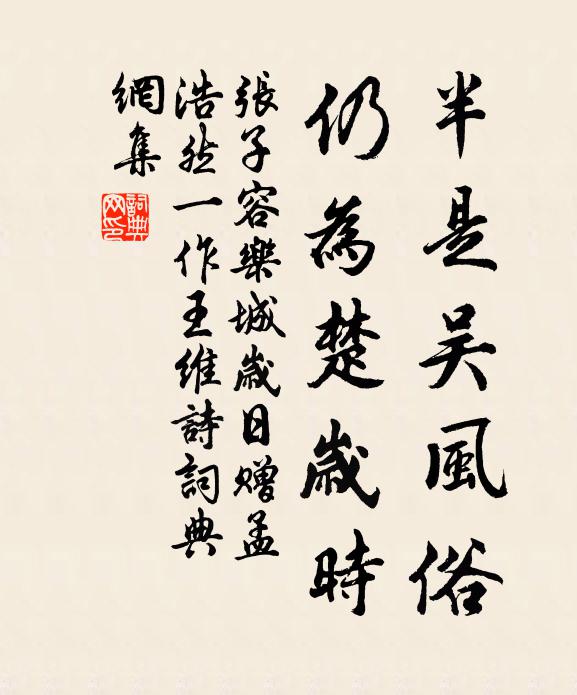 半是吳風俗
仍為楚歲時
張子容樂城歲日贈孟
浩然一作王維詩詞典
網集
詞典
网印